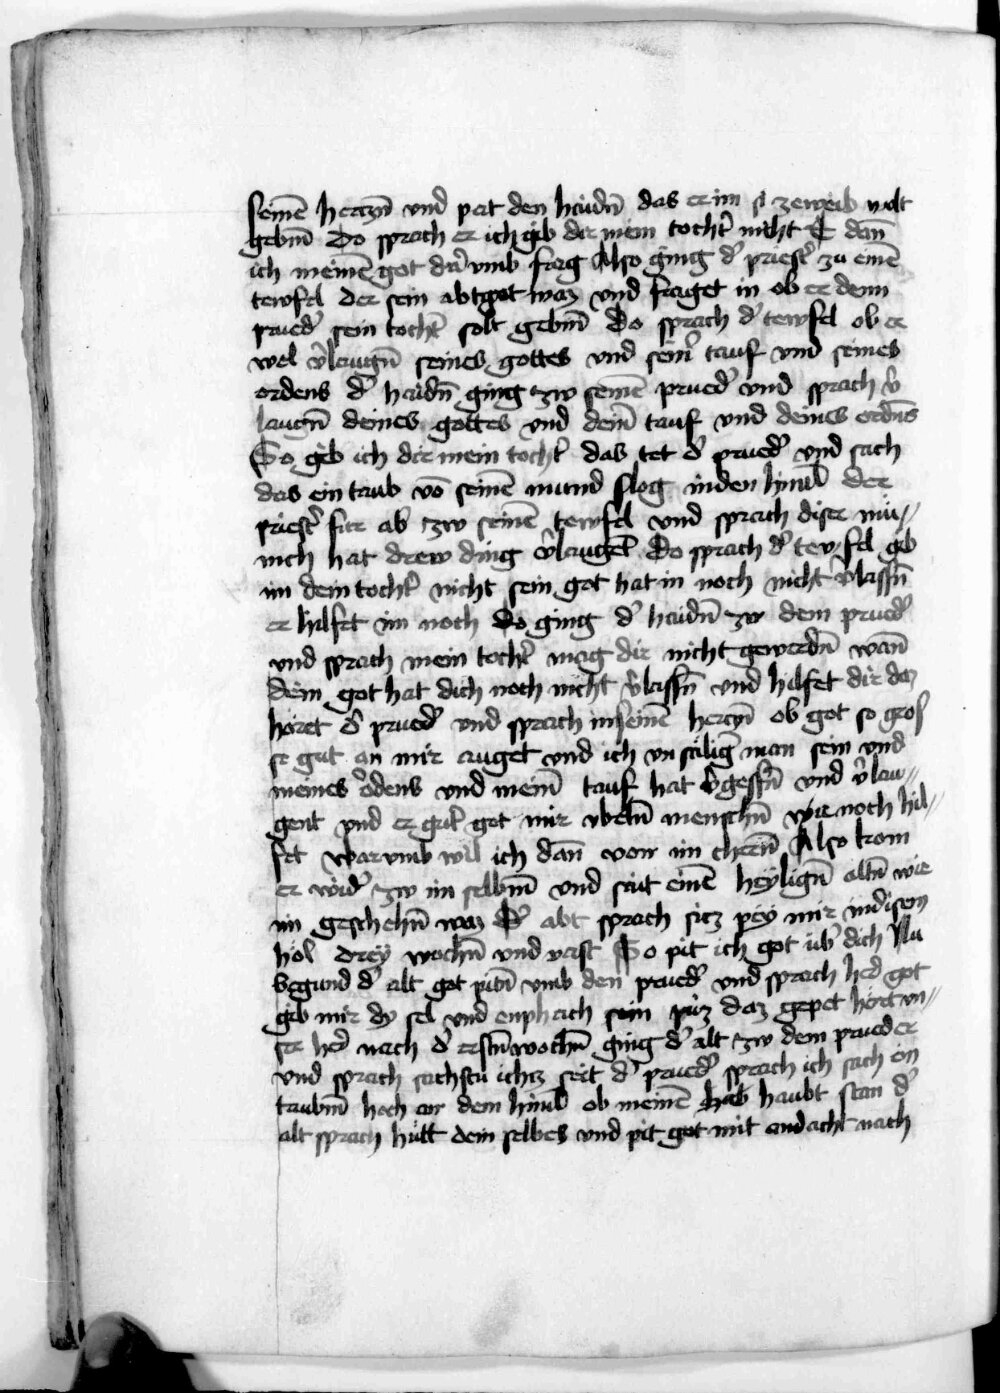 seinē herczn̄ vnd pat den haidn̄ das er im si zeweib wolt
gebm̄ Do sprach er ich gib dir mein tocht᷑ nicht E dan̄
ich meinen got dar vmb frag Also ging d᷑ priest᷑ zu einē
tewfel der sein abtgot waz vnd fraget in ob er denn
prued᷑ sein tocht᷑ solt gebm̄ Do sprach d᷑ tewfel ob er
wel v᷑laugn̄ seines gottes vnd sein᷑ tauf vnd seines
ordens d᷑ haidn̄ ging zw seinē prued᷑ vnd sprach v᷑
laugn̄ deines gottes vnd dein᷑ tauf vnd deines ordn̄s
So gib ich dir mein tocht᷑ das tet d᷑ prued᷑ vnd sach
das ein taub vō seinē mund flog in den himl der
priest᷑ fur ab zw seinē tewfel vnd sprach diser mü⸗
nich hat drew ding v᷑lauget Do sprach d᷑ tewfel gib
im dein tocht᷑ nicht sein got hat in noch nicht v᷑lassn̄
er hilfet im noch Do ging d᷑ haidn̄ zw dem prued᷑
vnd sprach mein tocht᷑ mag dir nicht gewerdn̄ wan̄
dein got hat dich noch nicht v᷑lassn̄ vnd hilfet dir daz
höret d᷑ prued᷑ vnd sprach in seinē herczn̄ ob got so gros
se gut an mir auget vnd ich vn sälig᷑ man sein vnd
meines ordens vnd mein᷑ tauf hat v᷑gessn̄ vnd v᷑lau⸗
gent vnd er gut᷑ got mir vbeln̄ menschn̄ wie noch hil⸗
fet warvmb wil ich dan̄ von im chern̄ Also kom
er wid᷑ zw im selbm̄ vnd sait einē heylign̄ altn̄ wie
im geschehn̄ waz D᷑ abt sprach sicz pey mir in disem
höl drey wochn̄ vnd vast So pit ich got üb᷑ dich Nu
begund d᷑ alt got pitn̄ vmb den prued᷑ vnd sprach her᷑ got
gib mir dy sel vnd enphach sein püz daz gepet höret vn⸗
ser her᷑ nach d᷑ erstn̄ wochn̄ ging d᷑ alt zw dem prueder
vnd sprach sachstu ichcz seit d᷑ prued᷑ sprach ich sach ein
taubm̄ hoch an dem himl ob meinē hab haubt stan d᷑
alt sprach hütt dein selbes vnd pit got mit andacht nach